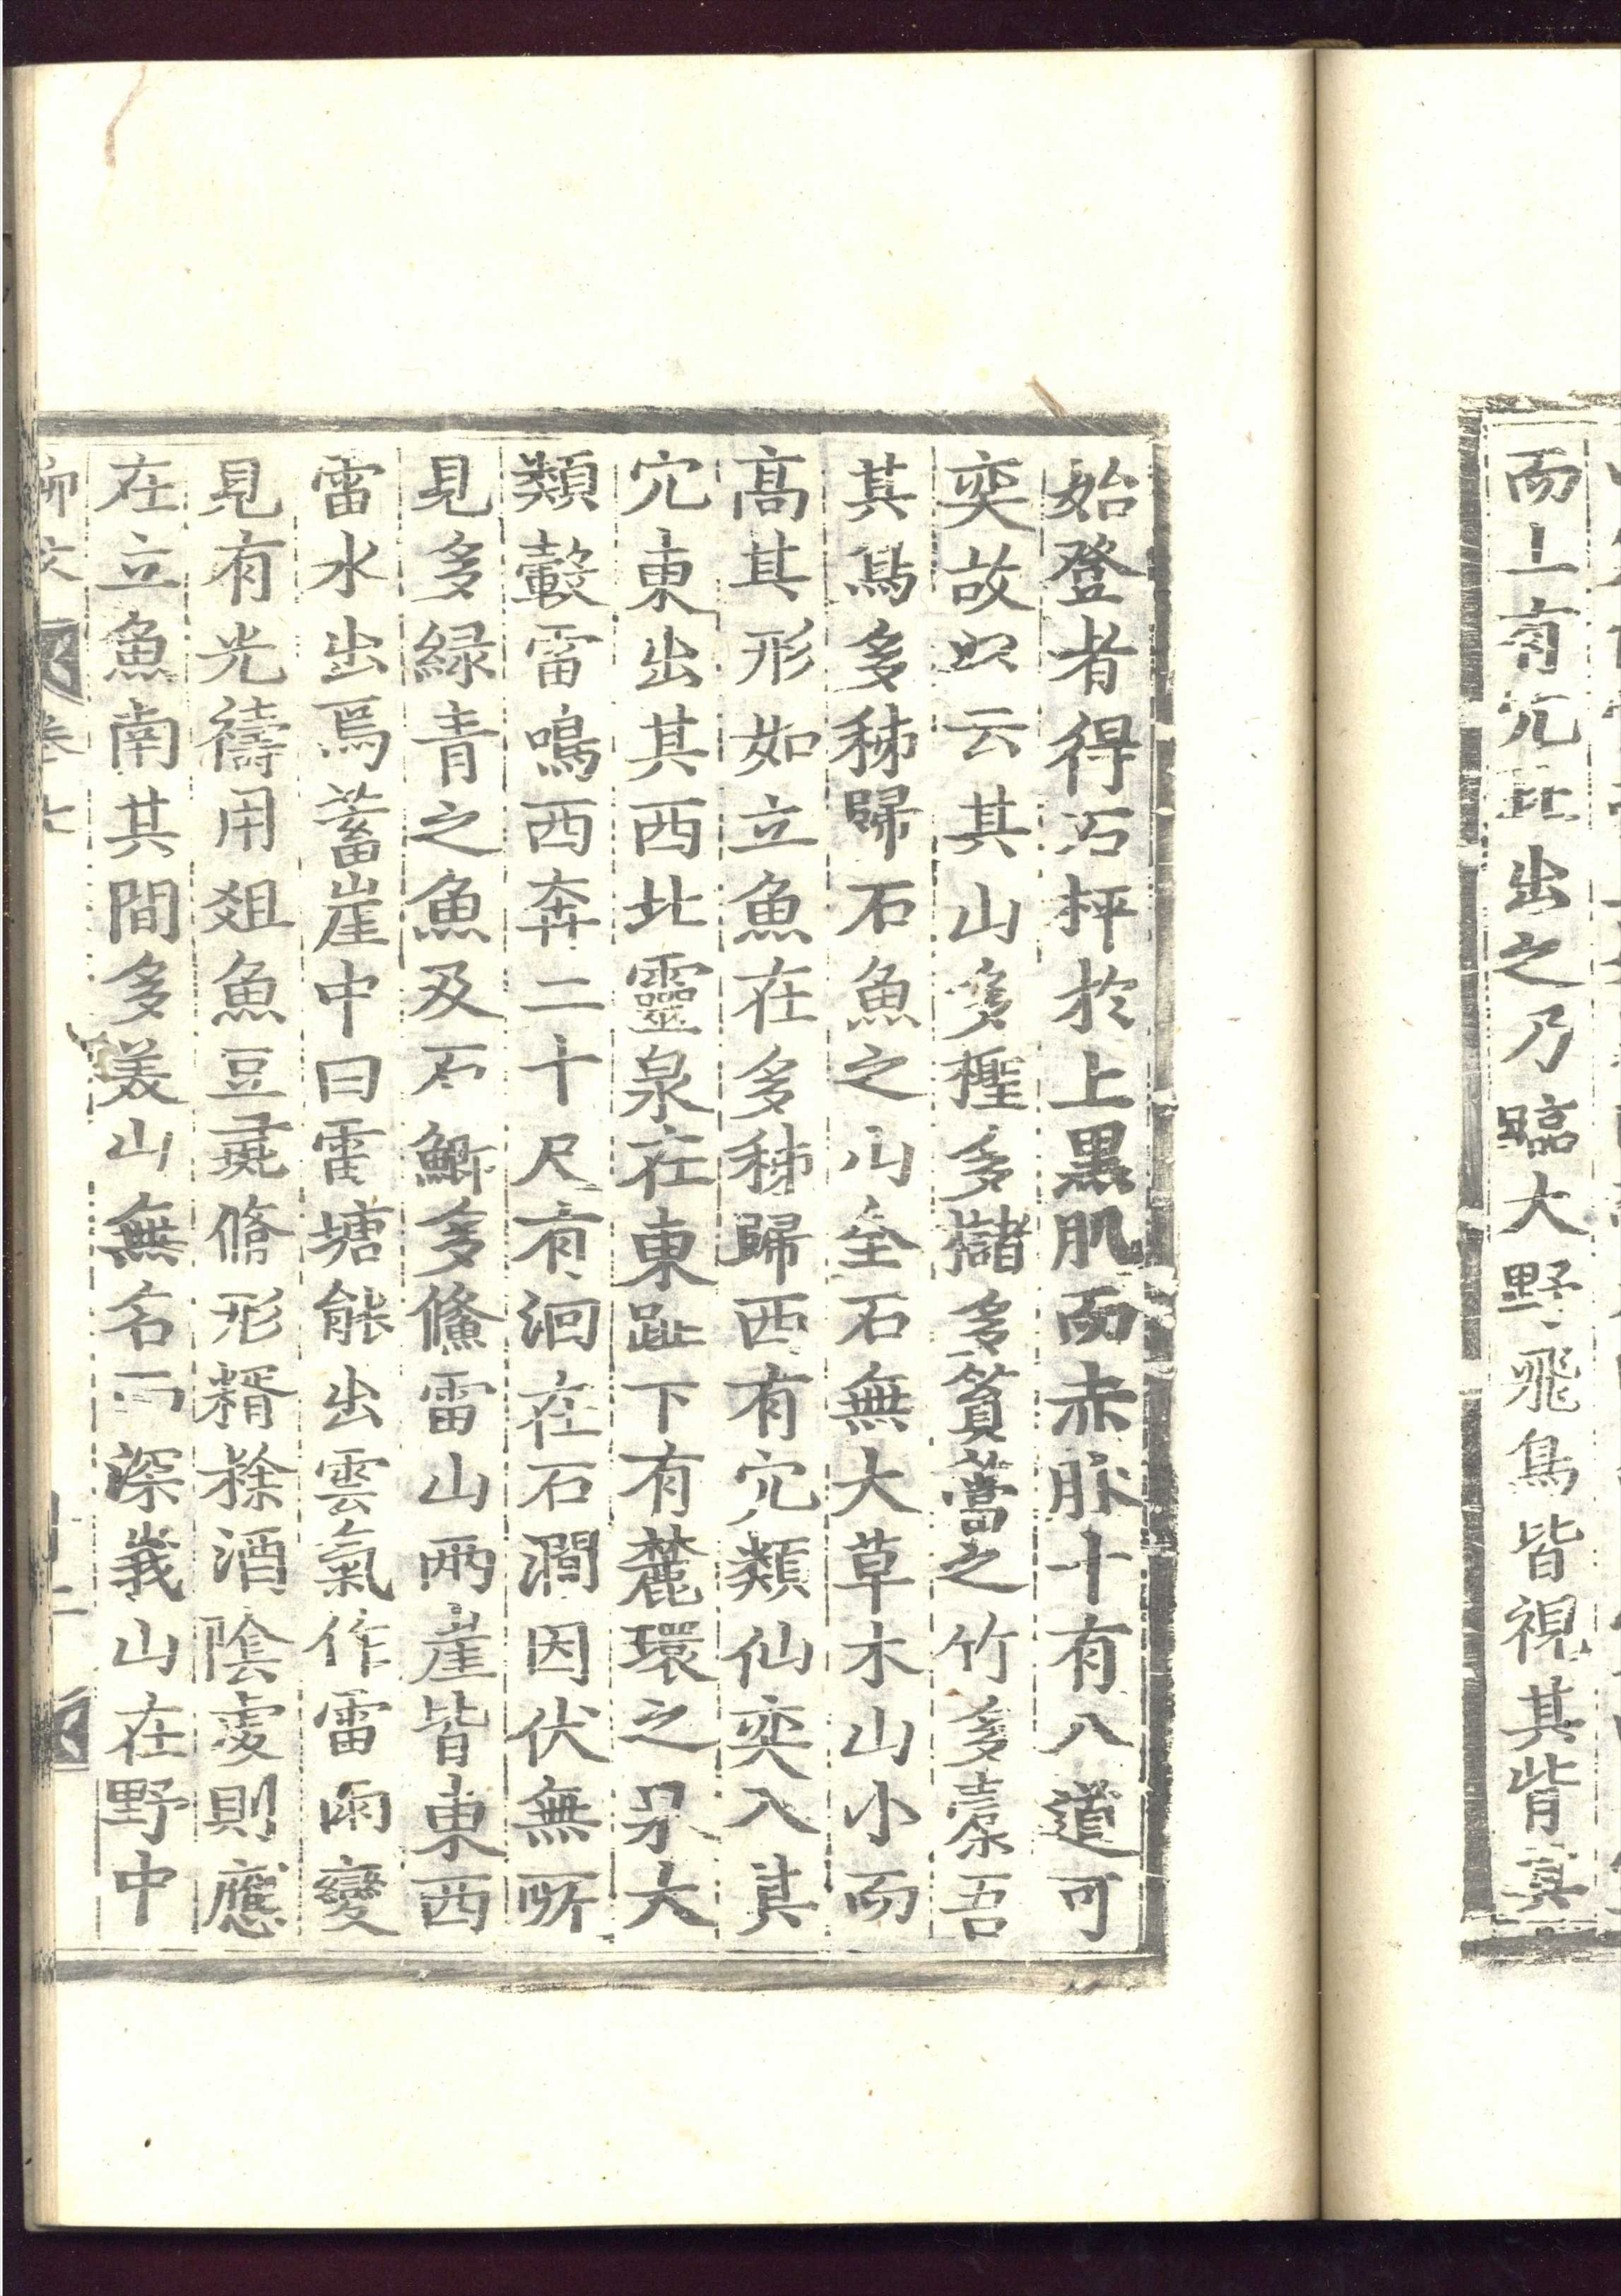 而上有穴北出之乃臨大野飛鳥皆視其背其
始登者得石枰於上黒肌而赤脉十有八道可
奕故以云其山多檉多櫧多篔簹之竹多橐吾
其鳥多秭歸石魚之山全石無大草木山小而
高其形如立魚在多秭歸西有穴類仙奕入其
穴東出其西北靈泉在東趾下有麓環之泉大
類轂雷鳴西奔二十尺有洄在石澗因伏無所
見多緑青之魚及石鯽多鯈雷山兩崖皆東西
雷水出焉蓄崖中曰雷塘能出雲氣作雷雨變
見有光禱用俎魚豆彘脩形糈稌酒陰處則應
在立魚南其間多美山無名而深峩山在野中
柳文 卷七